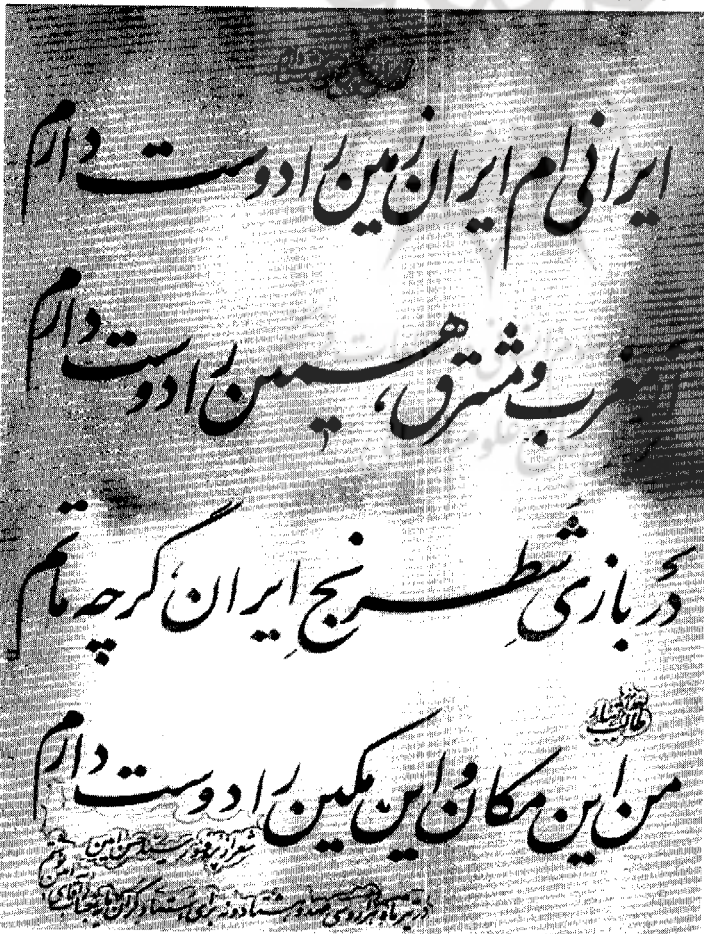 ایرانی‌ام ایران زمین را دوست دارم
از مغرب و مشرق، همین را دوست دارم
در بازیِ شطرنجِ ایران، گرچه ماتم
من این مکان و این مکین را دوست دارم
شعر از پروفسور سید حسن امین